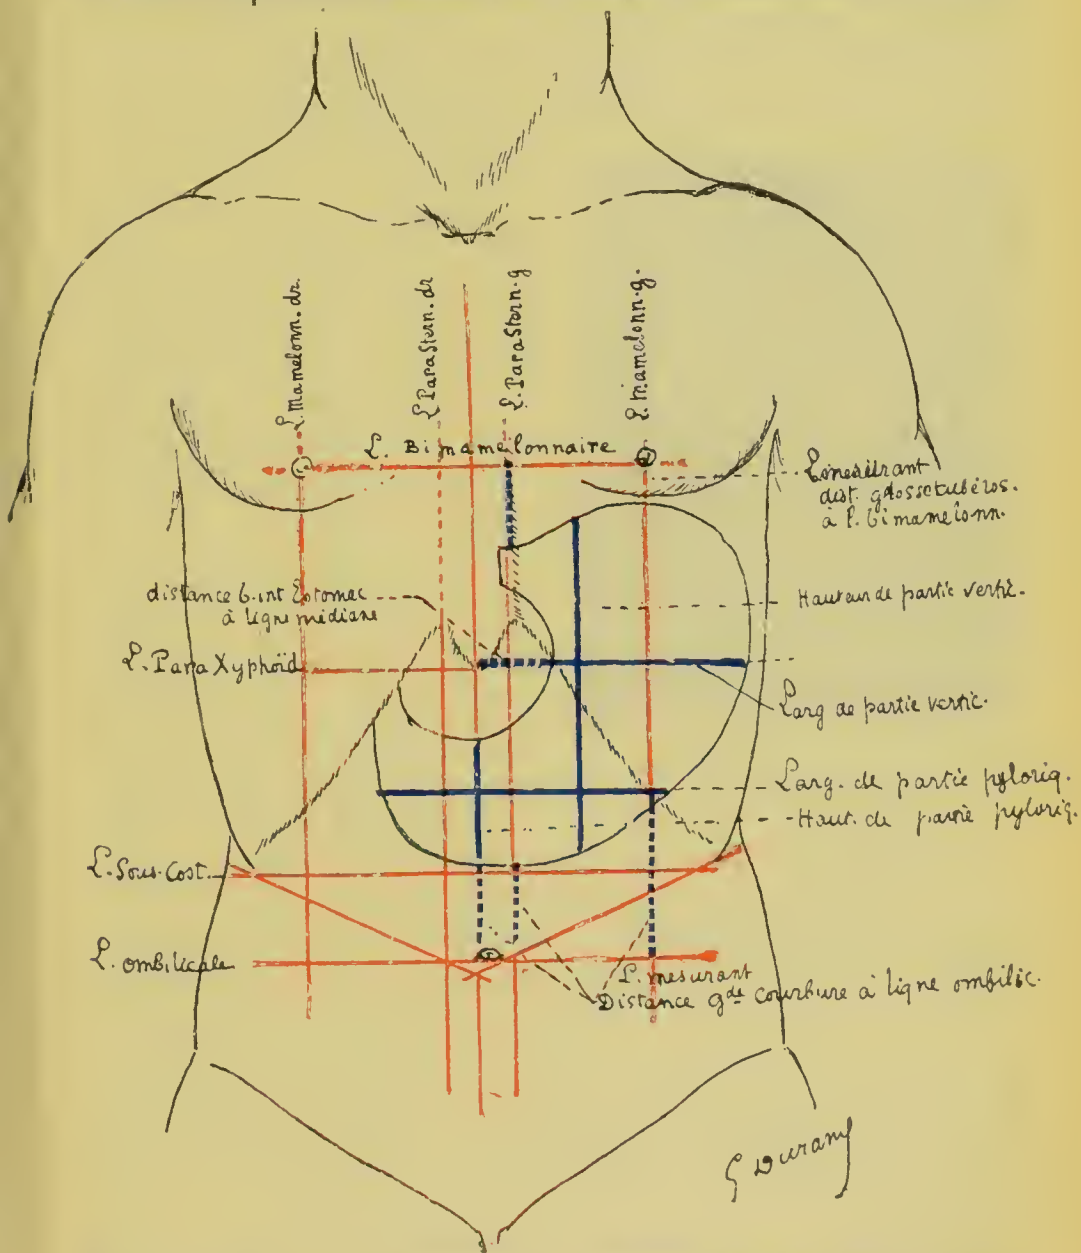 L. Mamelonn. dr.
L. ParaStern. dr
L. ParaStern. g
L. mamelonn. g.
L. Bimamelonnaire
L. mesurant
dist. grossetubéros.
à l. bimamelonn.
distance b. int Estomac
à ligne médiane
Hauteur de partie vertic.
L. ParaXyphoïd
Larg de partie vertic.
Larg. de partie pyloriq.
Haut. de partie pyloriq.
L. Sous. Cost.
L. ombilicale
L. mesurant
Distance gde courbure à ligne ombilic.
G Durand